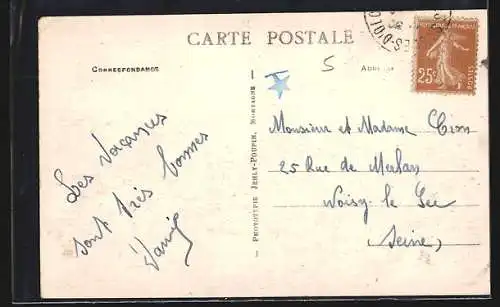 CARTE POSTALE
CORRESPONDANCE
5
ADRESSE
25c
POSTES
Les vacances
sont très bonnes
PHOTOTYPIE JEHLY-POUPIN, MORTAGNE
Monsieur et Madame
25 Rue de Merlan
Noisy le Sec
(Seine)